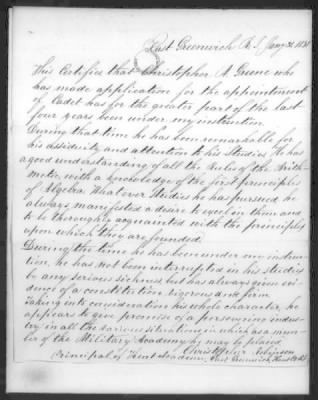 East Greenwich R. I. Jany 31. 1831
This Certifies that Christopher A. Greene who
has made application for the appointment
of Cadet has for the greater part of the last
four years been under my instruction.
During that time he has been remarkable for
his assiduity and attention to his Studies. He has
a good understanding of all the Rules of the Arith-
metic, with a knowledge of the first principles
of Algebra. Whatever Studies he has pursued he
always manifested a desire to excel in them and
to be thoroughly acquainted with the principles
upon which they are founded.
During the time he has been under my instruc-
tion, he has not been interrupted in his studies
by any serious sickness but has always given evi-
dence of a constitution vigorous and firm.
Taking into consideration his whole character, he
appears to give promise of a persevering indus-
try in all the various situations in which as a mem-
ber of the Military Academy he may be placed.
Christopher Robinson
Principal of Kent Academy, East Greenwich, Kent Co. R.I.